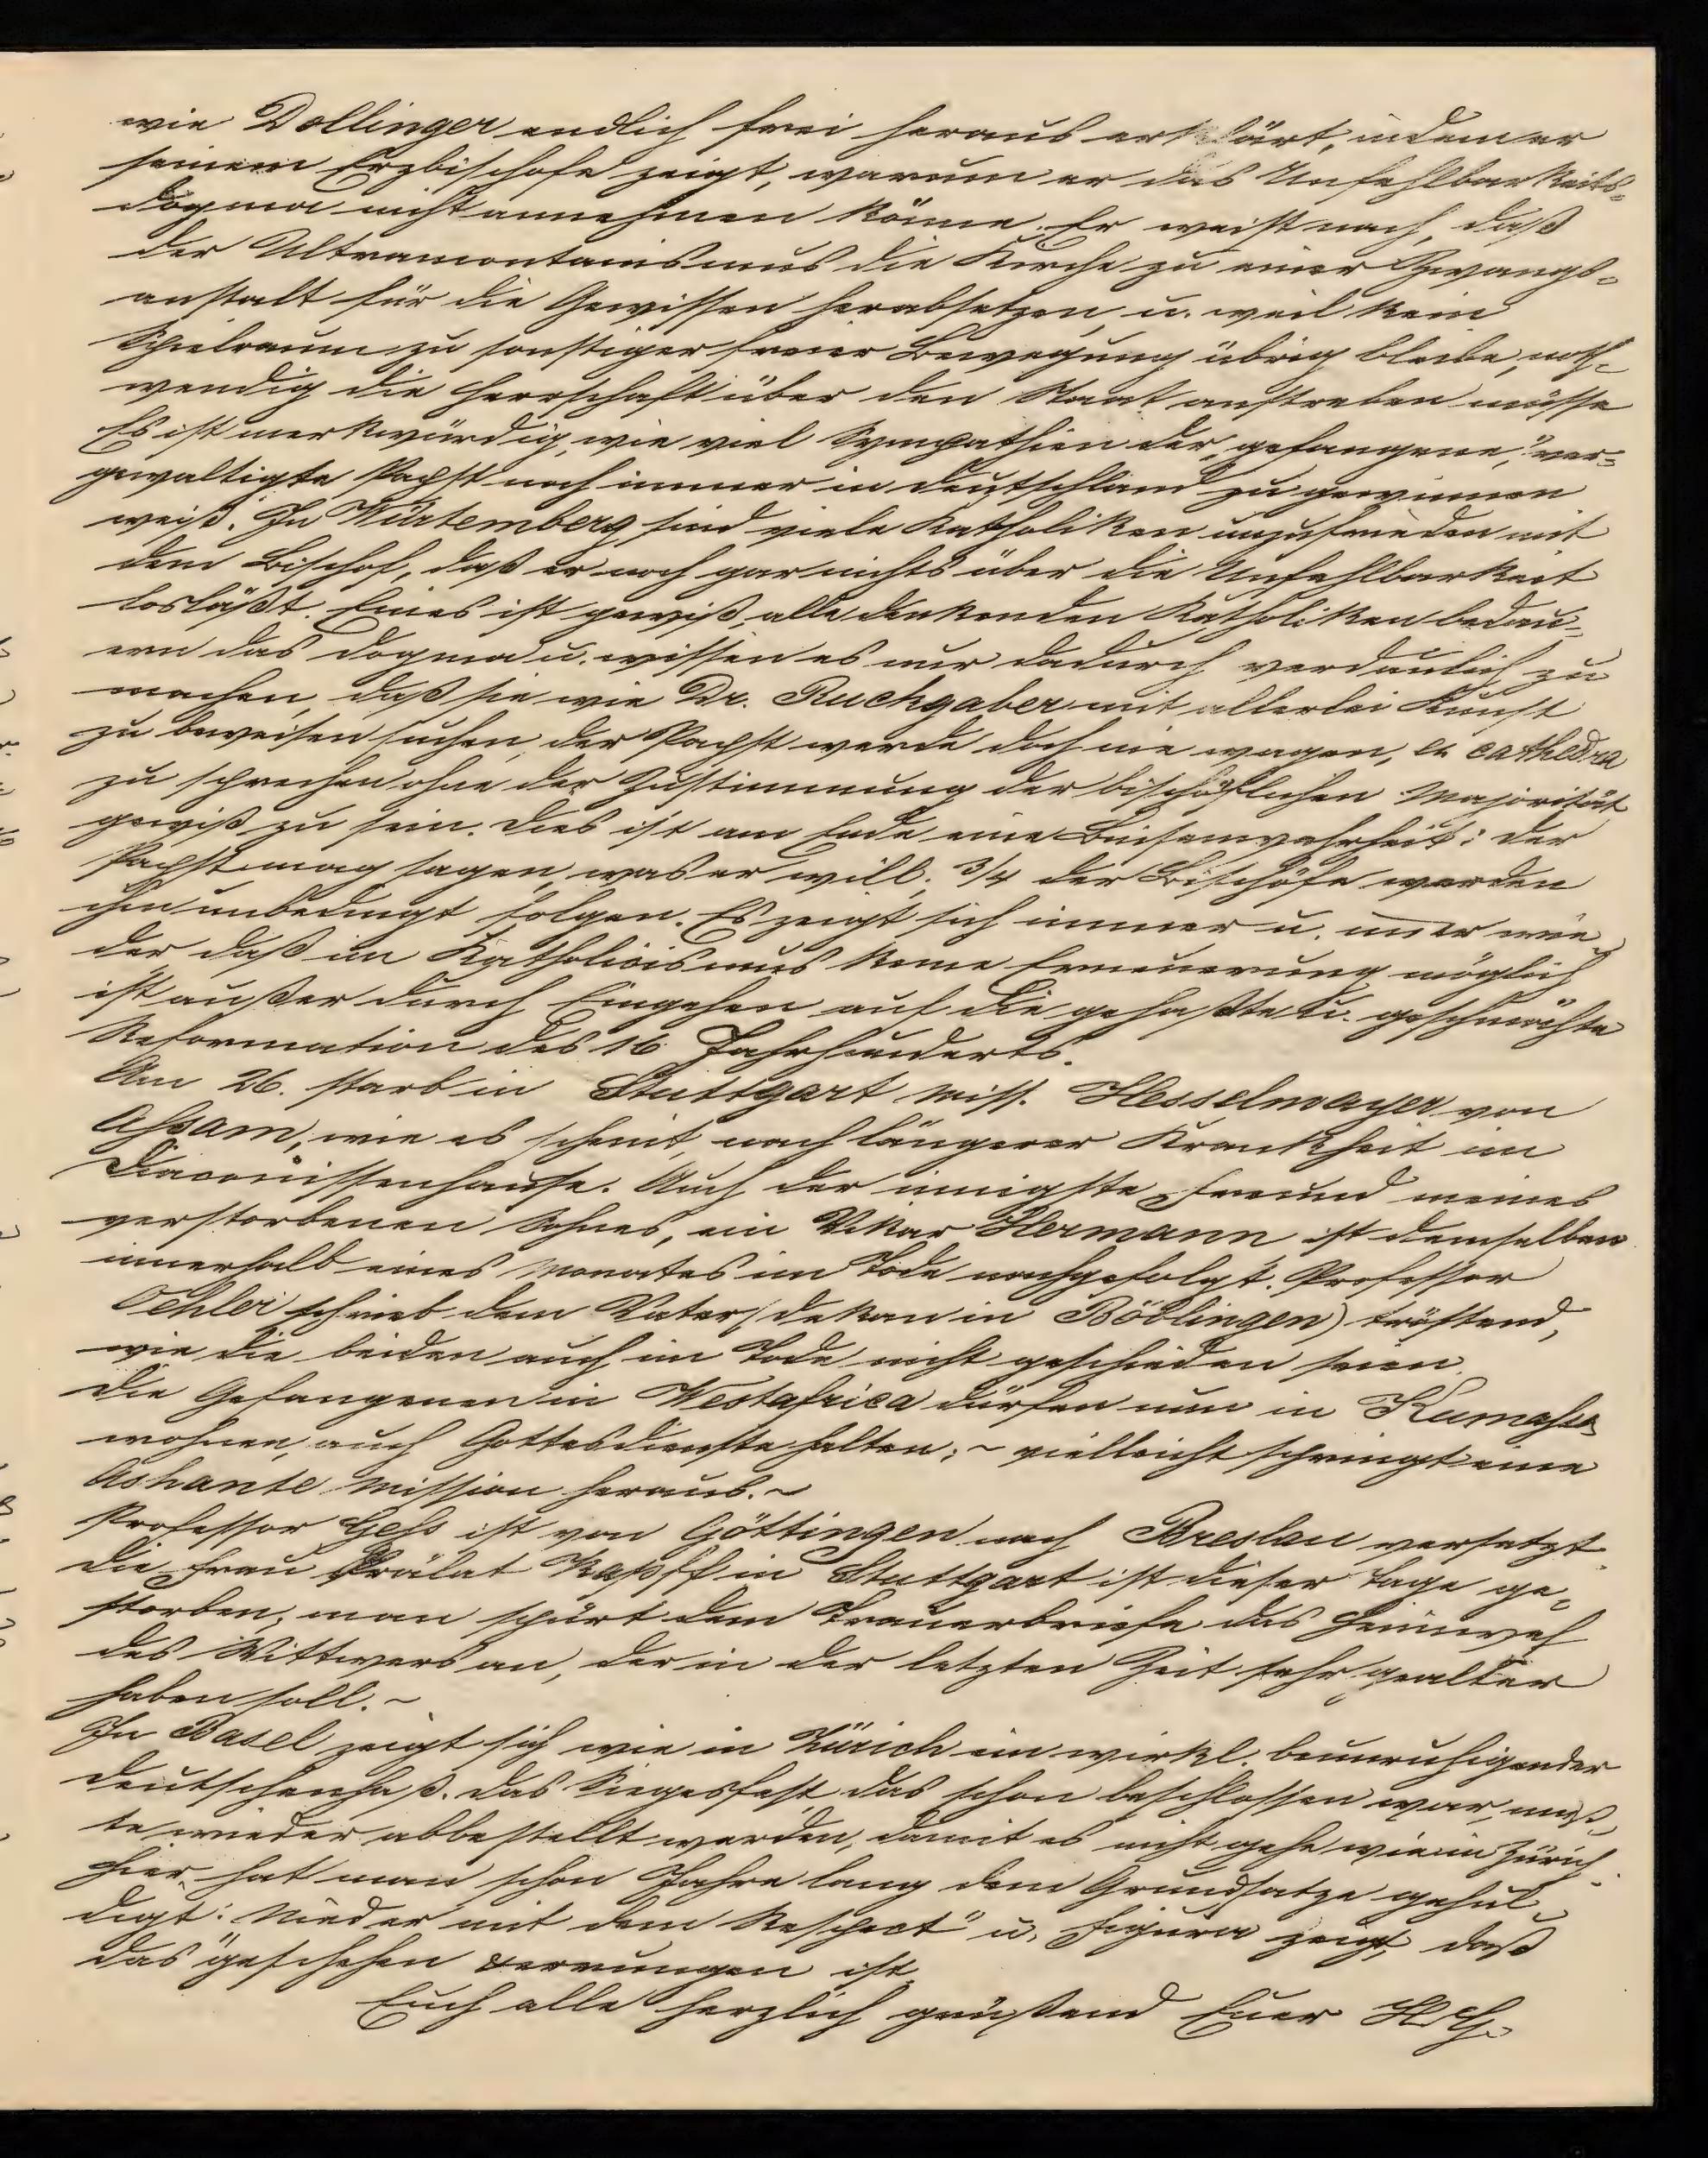 wie Döllinger endlich frei heraus erklärt, indem er
seinem Erzbischofe zeigt, warum er das Unfehlbarkeits-
dogma nicht annehmen könne. Er weist nach, daß
der Ultramontanismus die Kirche zu einer Zwangs-
anstalt für die Gewissen herabsetzen, u. weil kein
Spielraum zu sonstiger freier Bewegung übrig bleibe, noth-
wendig die Herrschaft über den Staat anstreben müsse
Es ist merkwürdig, wie viel Sympathien der "gefangene," ver-
gewaltigte Papst noch immer in Deutschland zu gewinnen
weiß. In Würtemberg sind viele Katholiken unzufrieden mit
dem Bischof, daß er noch gar nichts über die Unfehlbarkeit
losläßt. Eines ist gewiß, alle denkenden Katholiken bedau-
ern das Dogma u. wissen es nur dadurch verdaulich zu
machen, daß sie wie Dr. Ruckgaber mit allerlei Kunst
zu beweisen suchen, der Papst werde doch nie wagen, ex cathedra
zu sprechen ohne der Zustimmung der bischöflichen Majorität
gewiß zu sein. Dies ist am Ende eine Binsenwahrheit: der
Papst mag sagen, was er will, 3/4 der Bischöfe werden
ihm unbedingt folgen. Es zeigt sich immer u. immer wie-
der daß im Katholicismus keine Erneuerung möglich
ist außer durch Eingehen auf die gehaßte u. geschmähte
Reformation des 16 Jahrhunderts.
Am 26. starb in Stuttgart Miss. Hesselmayer von
Assam, wie es scheint, nach längerer Krankheit im
Diaconissenhause. Auch der innigste Freund meines
verstorbenen Sohnes, ein Vikar Hermann ist demselben
innerhalb eines Monates im Tode nachgefolgt. Professor
Oehler schrieb dem Vater (Dekan in Böblingen) tröstend,
wie die beiden auch im Tode nicht geschieden seien.
Die Gefangenen in Westafrica dürfen nun in Kumase
wohnen, auch Gottesdienste halten; ~ vielleicht springt eine
Ashante Mission heraus. ~
Professor Gess ist von Göttingen nach Breslau versetzt.
Die Frau Prälat Kapff in Stuttgart ist dieser Tage ge-
storben, man spürt dem Trauerbriefe das Heimweh
des Wittwers an, der in der letzten Zeit sehr gealtert
haben soll. ~
In Basel zeigt sich wie in Zürich ein wirkl. beunruhigender
Deutschenhaß. Das Siegesfest das schon beschlossen war, muß-
te wieder abbestellt werden, damit es nicht gehe wie in Zürich.
Hier hat man schon Jahre lang dem Grundsatze gehul-
digt: Nieder mit dem Respect" u. Figura zeigt, daß
das geschehen ist.
Euch alle herzlich grüßend Euer HG.